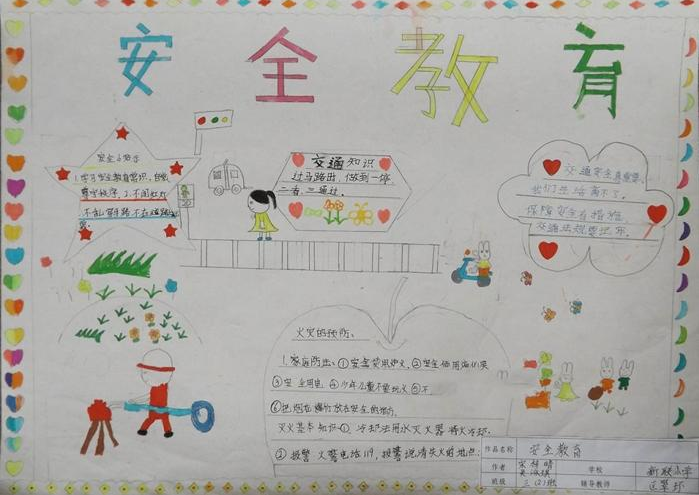 安全教育
安全小常识
1.学习安全教育常识,自觉
遵守秩序,2.不闯红灯
不乱穿马路不在道路
交通知识
过马路出,做到一停
二看,三通过。
交通安全真重要,
我们生活离不了。
保障安全有措施,
交通法规要记牢。
火灾的预防、
1.家庭防火:①安全使用炉火,②安全使用液化
③安全用电,④少年儿童不要玩火⑤不
⑥把烟花爆竹放在安全的地方
灭火基本知识:①、冷却法用水灭火器将火冷却.
②报警火警电话119,报警说清失火的地点.
作品名称 安全教育
作者 学校
班级 三(2)班 辅导教师